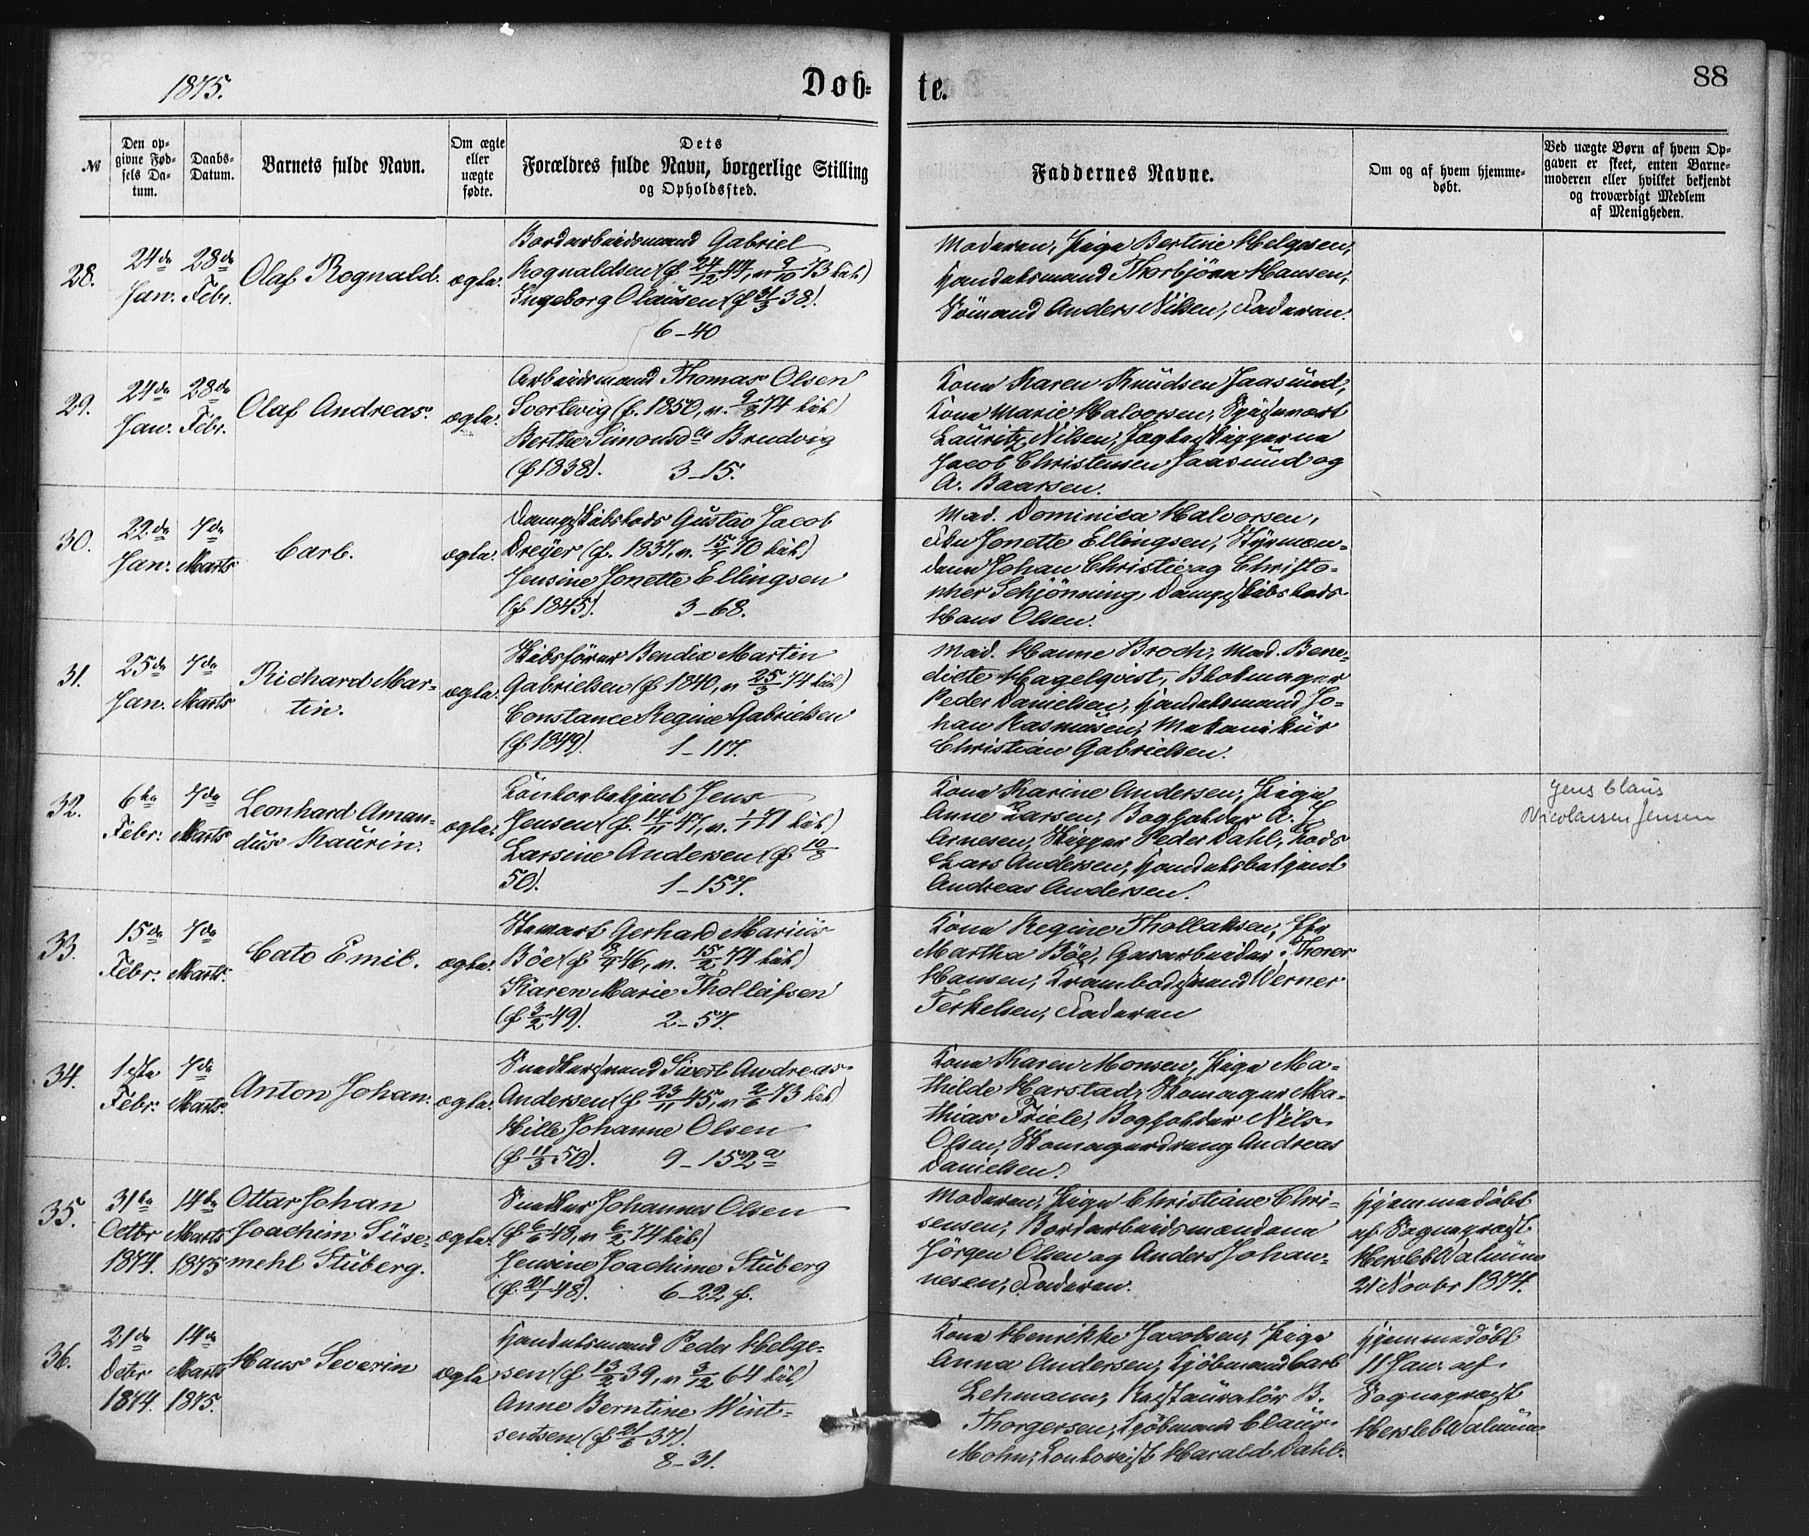 1875.
Døb=
te.
88
№
Den op-
givne Fød-
sels Da-
tum.
Daabs-
Datum.
Barnets fulde Navn.
Om ægte
eller
uægte
fødte.
Dets
Forældres fulde Navn, borgerlige Stilling
og Opholdssted.
Faddernes Navne.
Om og af hvem hjemme-
døbt.
Ved uægte Børn af hvem Op-
gaven er skeet, enten Barne-
moderen eller hvilket bekjendt
og troværdigt Medlem
af Menigheden.
28.
24de
Jan.
28de
Febr.
Olaf Rognald.
ægte.
Bordarbeidsmand Gabriel
Rognaldsen (f 24/12 44, v 9/10 73 her)
Ingeborg Olausen (f 31/3 38).
6-40
Moderen, Pige Bertine Helgesen,
Handelsmand Thorbjörn Hansen,
Sömand Anders Nilsen, Faderen.
29.
24de
Jan.
28de
Febr.
Olaf Andreas.
ægte.
Arbeidsmand Thomas Olsen
Svortevig (f. 1850, v. 9/8 74 her)
Berthe Simonsdtr Brudvig
(f 1838). 3-15.
Kone Karen Knudsen Jaasund,
Kone Marie Halvorsen,
Lauritz Nilsen, Jagteskipperne
Jacob Christensen Jaasund og
A. Baarsen.
30.
22de
Jan.
7de
Marts
Carl.
ægte.
Dampskibskods Gustav Jacob
Dreyer (f. 1837, v. 15/5 70 her)
Jensine Jonette Ellingsen
(f 1845). 3-68.
Mad. Dominica Halvorsen,
Jonette Ellingsen, Styrmæn-
dene Johan Christie og Christo-
pher Schjönning, Dampskibskods
Hans Olsen.
31.
25de
Jan.
7de
Marts
Richard Mar-
tin.
ægte.
Skibsförer Bendix Martin
Gabrielsen (f 1840, v 25/3 74 her)
Constance Regine Gabrielsen
(f 1849). 1-117.
Mad. Hanne Broch, Mad. Bene-
dicte Hagelqvist, Blokmager
Peder Danielsen, Handelsmand Jo-
han Rasmusen, Mekanikus
Christian Gabrielsen.
32.
6te
Febr.
7de
Marts
Leonhard Aman-
dus Kaurin.
ægte.
Kontorbetjent Jens
Jensen (f. 14/11 47, v. 1/1 71 her)
Larsine Andersen (f 10/8
50). 1-157.
Kone Karine Andersen, Pige
Anne Larsen, Bogholder A. J.
Arnesen, Skipper Peder Dahl, Kods
Lars Andersen, Handelsbetjent
Andreas Andersen.
Jens Claus
Nicolaisen Jensen
33.
15de
Febr.
7de
Marts.
Cato Emil.
ægte.
Stewart Gerhard Marius
Böe (f 46, v. 15/2 74 her)
Karen Marie Tholleifsen
(f 3/2 49). 2-57.
Kone Regine Thollaksen, Jfr
Martha Böe, Gasarbeider Thorer
Hansen, Krambodsvend Werner
Terkelsen, Faderen
34.
1ste
Febr.
7de
Marts.
Anton Johan.
ægte.
Snedkersvend Sivert Andreas
Andersen (f 23/11 45, v 2/6 73 her)
Hille Johanne Olsen
(f 11/3 50). 9-152a
Kone Karen Monsen, Pige Ma-
thilde Harstad, Skomager Ma-
thias Friele, Bogholder Nils
Olsen, Skomagerdreng Andreas
Danielsen.
35.
31te
Octbr
1874.
14de
Marts
1875
Ottar Johan
Joachim Süse-
mehl Stuberg.
ægte.
Snedker Johannes Olsen
(f 6/6 48, v 6/2 74 her)
Jensine Joachime Stuberg
(f. 21/1 48). 6-22 f.
Moderen, Pige Christiane Chri-
sensen, Bordarbeidsmændene
Jörgen Olsen og Anders Johan-
nesen, Faderen.
Hjemmedöbt
af Sognepræst
Hersleb Walnum
21 Novbr 1874.
36.
21de
Dcbr
1874.
14de
Marts
1875.
Hans Severin
ægte
Handelsmand Peder Helge-
sen (f 13/2 39, v 3/12 64 her)
Anne Berntine Wint-
sentsen (f 21/6 37).
8-31.
Kone Henrikke Jacobsen, Pige
Anna Andersen, Kjöbmand Carl
Lehmann, Restauratör B.
Thorgersen, Kjöbmand Claus
Mohn, Kontorist Harald Dahl.
Hjemmedöbt
11 Jan. af
Sognepræst
Hersleb Walnum